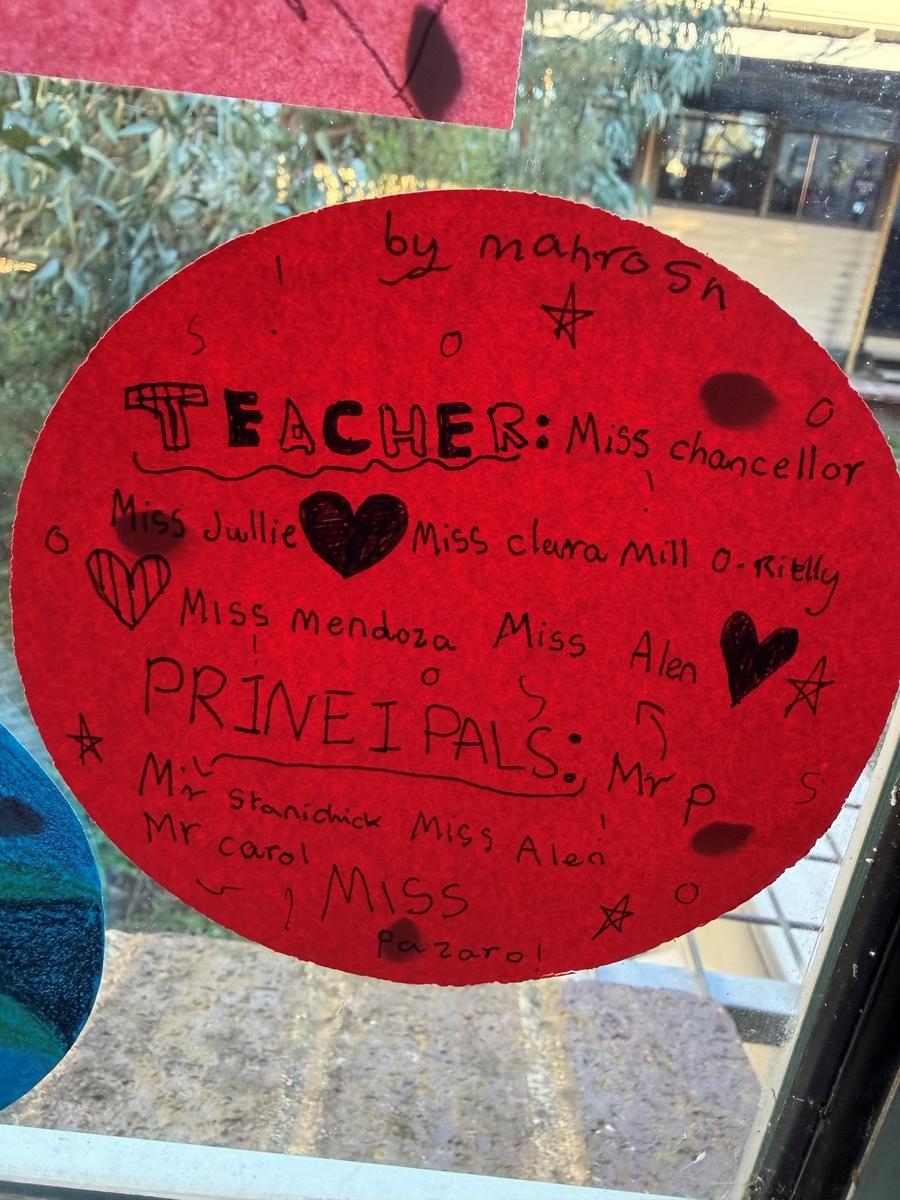 by mahrosh
TEACHER: Miss chancellor
Miss Jullie Miss clara Mill O-Rielly
Miss mendoza Miss Alen
PRINEIPALS: Mr P
Mr Stanichick Miss Alen
Mr carol
MISS
Pazaro!